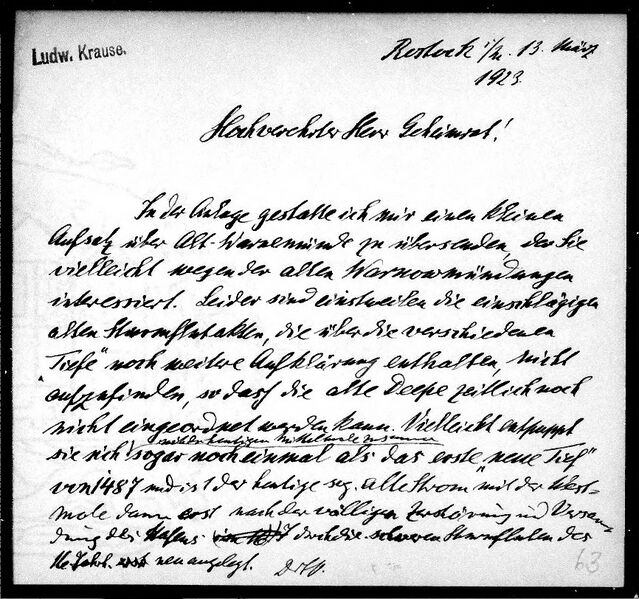 Ludw. Krause.
Rostock i/M. 13. März
1923.
Hochverehrter Herr Geheimrat!
In der Anlage gestatte ich mir einen kleinen
Aufsatz über Alt-Warnemünde zu übersenden, der Sie
vielleicht wegen der alten Warnowmündungen
interessiert. Leider sind einstweilen die einschlägigen
alten Sturmflutakten, die über die verschiedenen
"Tiefe" noch weitere Aufklärung enthalten, nicht
aufzufinden, so dass die alte Deepe zeitlich noch
nicht eingeordnet werden kann. Vielleicht entpuppt
mit der heutigen Mittelmole zusammen
sie sich sogar noch einmal als das erste "neue Tief"
von 1487 und ist der heutige sog. alte Strom mit der West-
mole dann erst nach der völligen Zerstörung und Versan
dung des Hafens durch die schweren Sturmfluten des
16. Jahrh. neu angelegt.
63